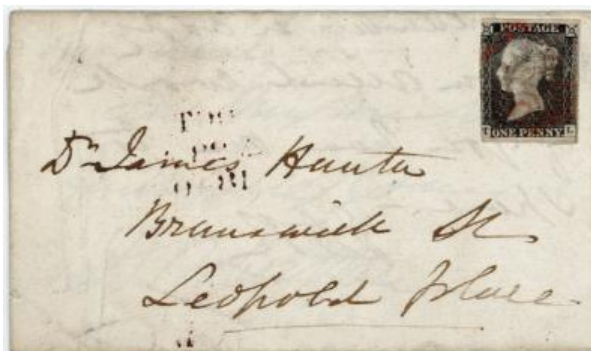 POSTAGE
ONE PENNY
L
Dr James Hunter
Brunswick St
Leopold Place